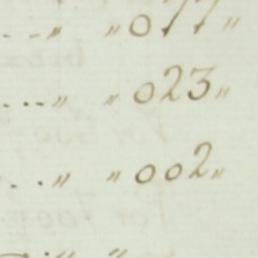 ..." "077"
..." "023"
..." "002"